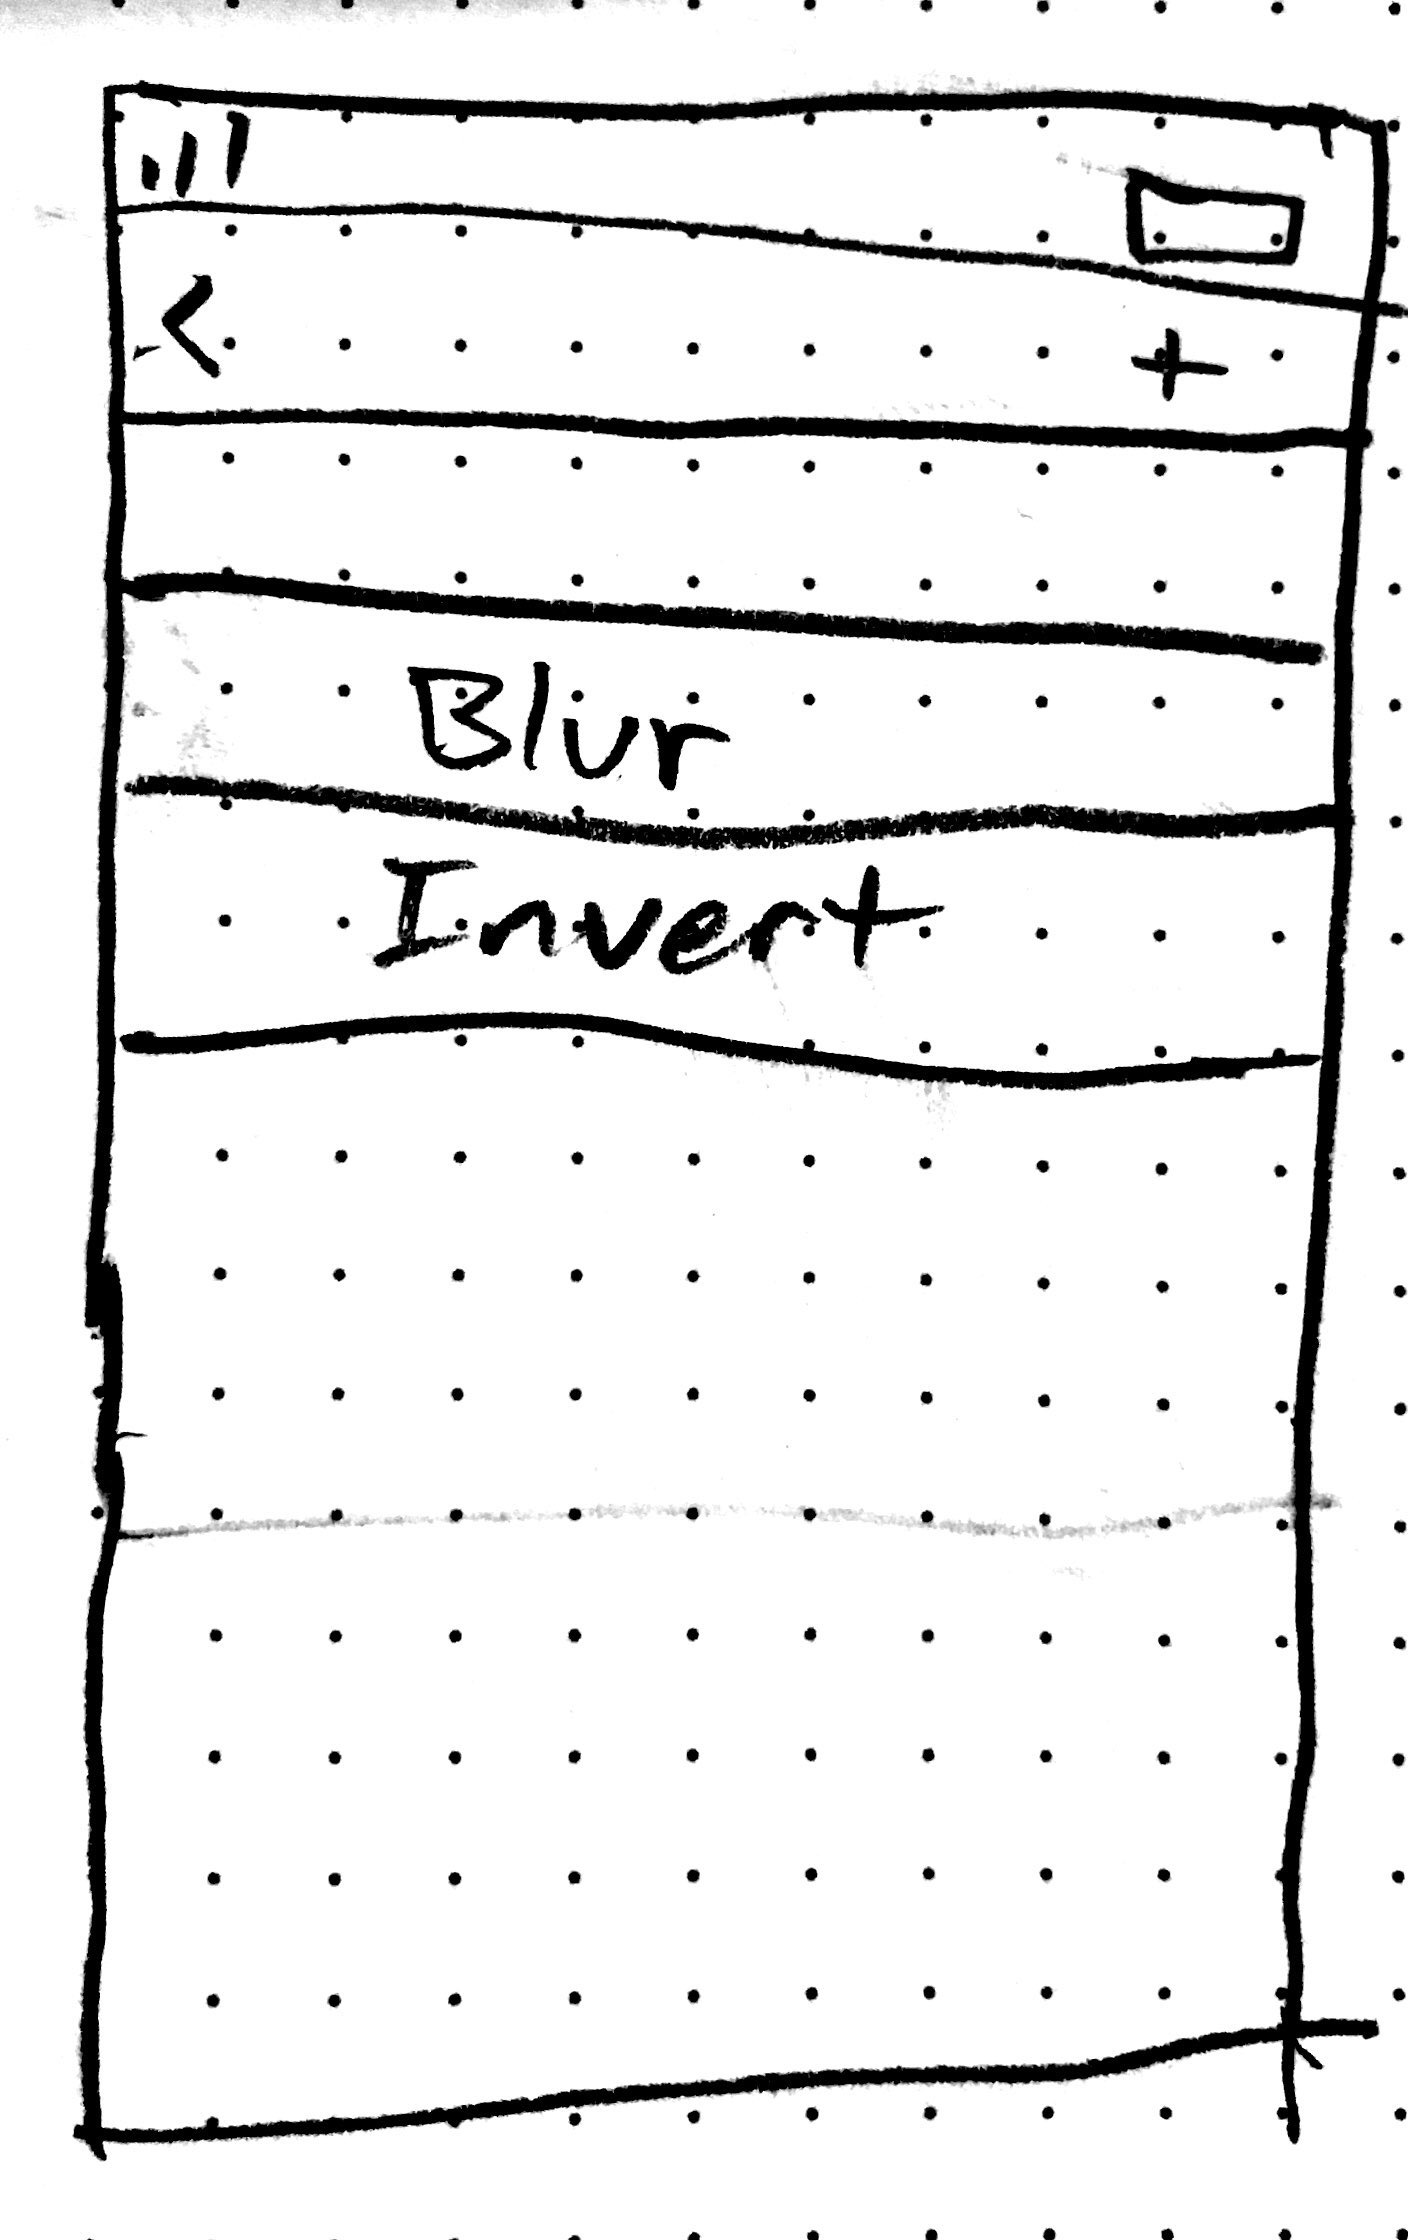 <
+
Blur
Invert